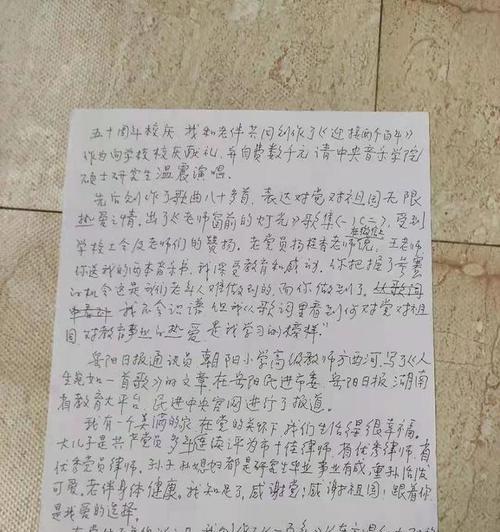 五十周年校庆，我和老伴共同创作了《迎接两个百年》
作为向学校校庆献礼，并自费数千元请中央音乐学院
硕士研究生温震演唱。
先后创作了歌曲八十多首，表达对党对祖国无限
热爱之情。出了《老师窗前的灯光》歌集(一)(二)，受到
学校工会及老师们的赞扬。老党员杨桂香老师在微信上说，王老师
你送我的两本音乐书，我深受教育和感动，你把握了
机会这是我们老年人难做到的，而你做到了，从歌词
我不会识谱但我从歌词里看到你对党对祖
国对教育事业的热爱，是我学习的榜样。"
岳阳日报通讯员朝阳小学高级教师方西河，写了《人
生宛如一首歌》的文章在岳阳民进市委、岳阳日报、湖南
省教育大平台、民进中央官网进行了报道。
我有一个美满的家，在党的关怀下，我们生活得很幸福。
大儿子是共产党员，多年连续评为市十佳律师，省优秀律师，省
优秀党员律师。孙子孙媳妇都是研究生毕业，事业有成，重孙活泼
可爱。老伴身体健康。我知足了，感谢党，感谢祖国，跟着你
是我爱的选择。